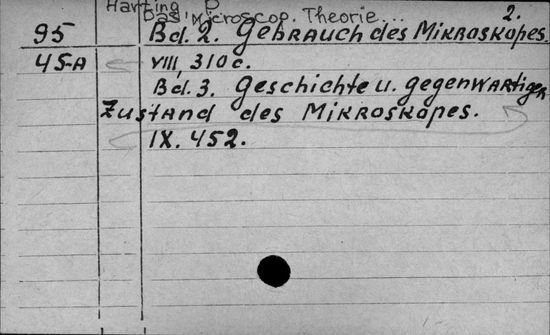 Harting P
Das Microscop. Theorie... 2.
95 Bd. 2. Gebrauch des Mikroskopes.
45-A VIII, 310 c.
Bd. 3. Geschichte u. gegenwartiger
Zustand des Mikroskopes.
IX. 452.